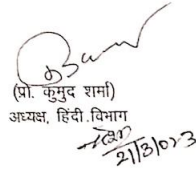 (प्रो. कुमुद शर्मा)
अध्यक्ष, हिंदी विभाग
21/3/023